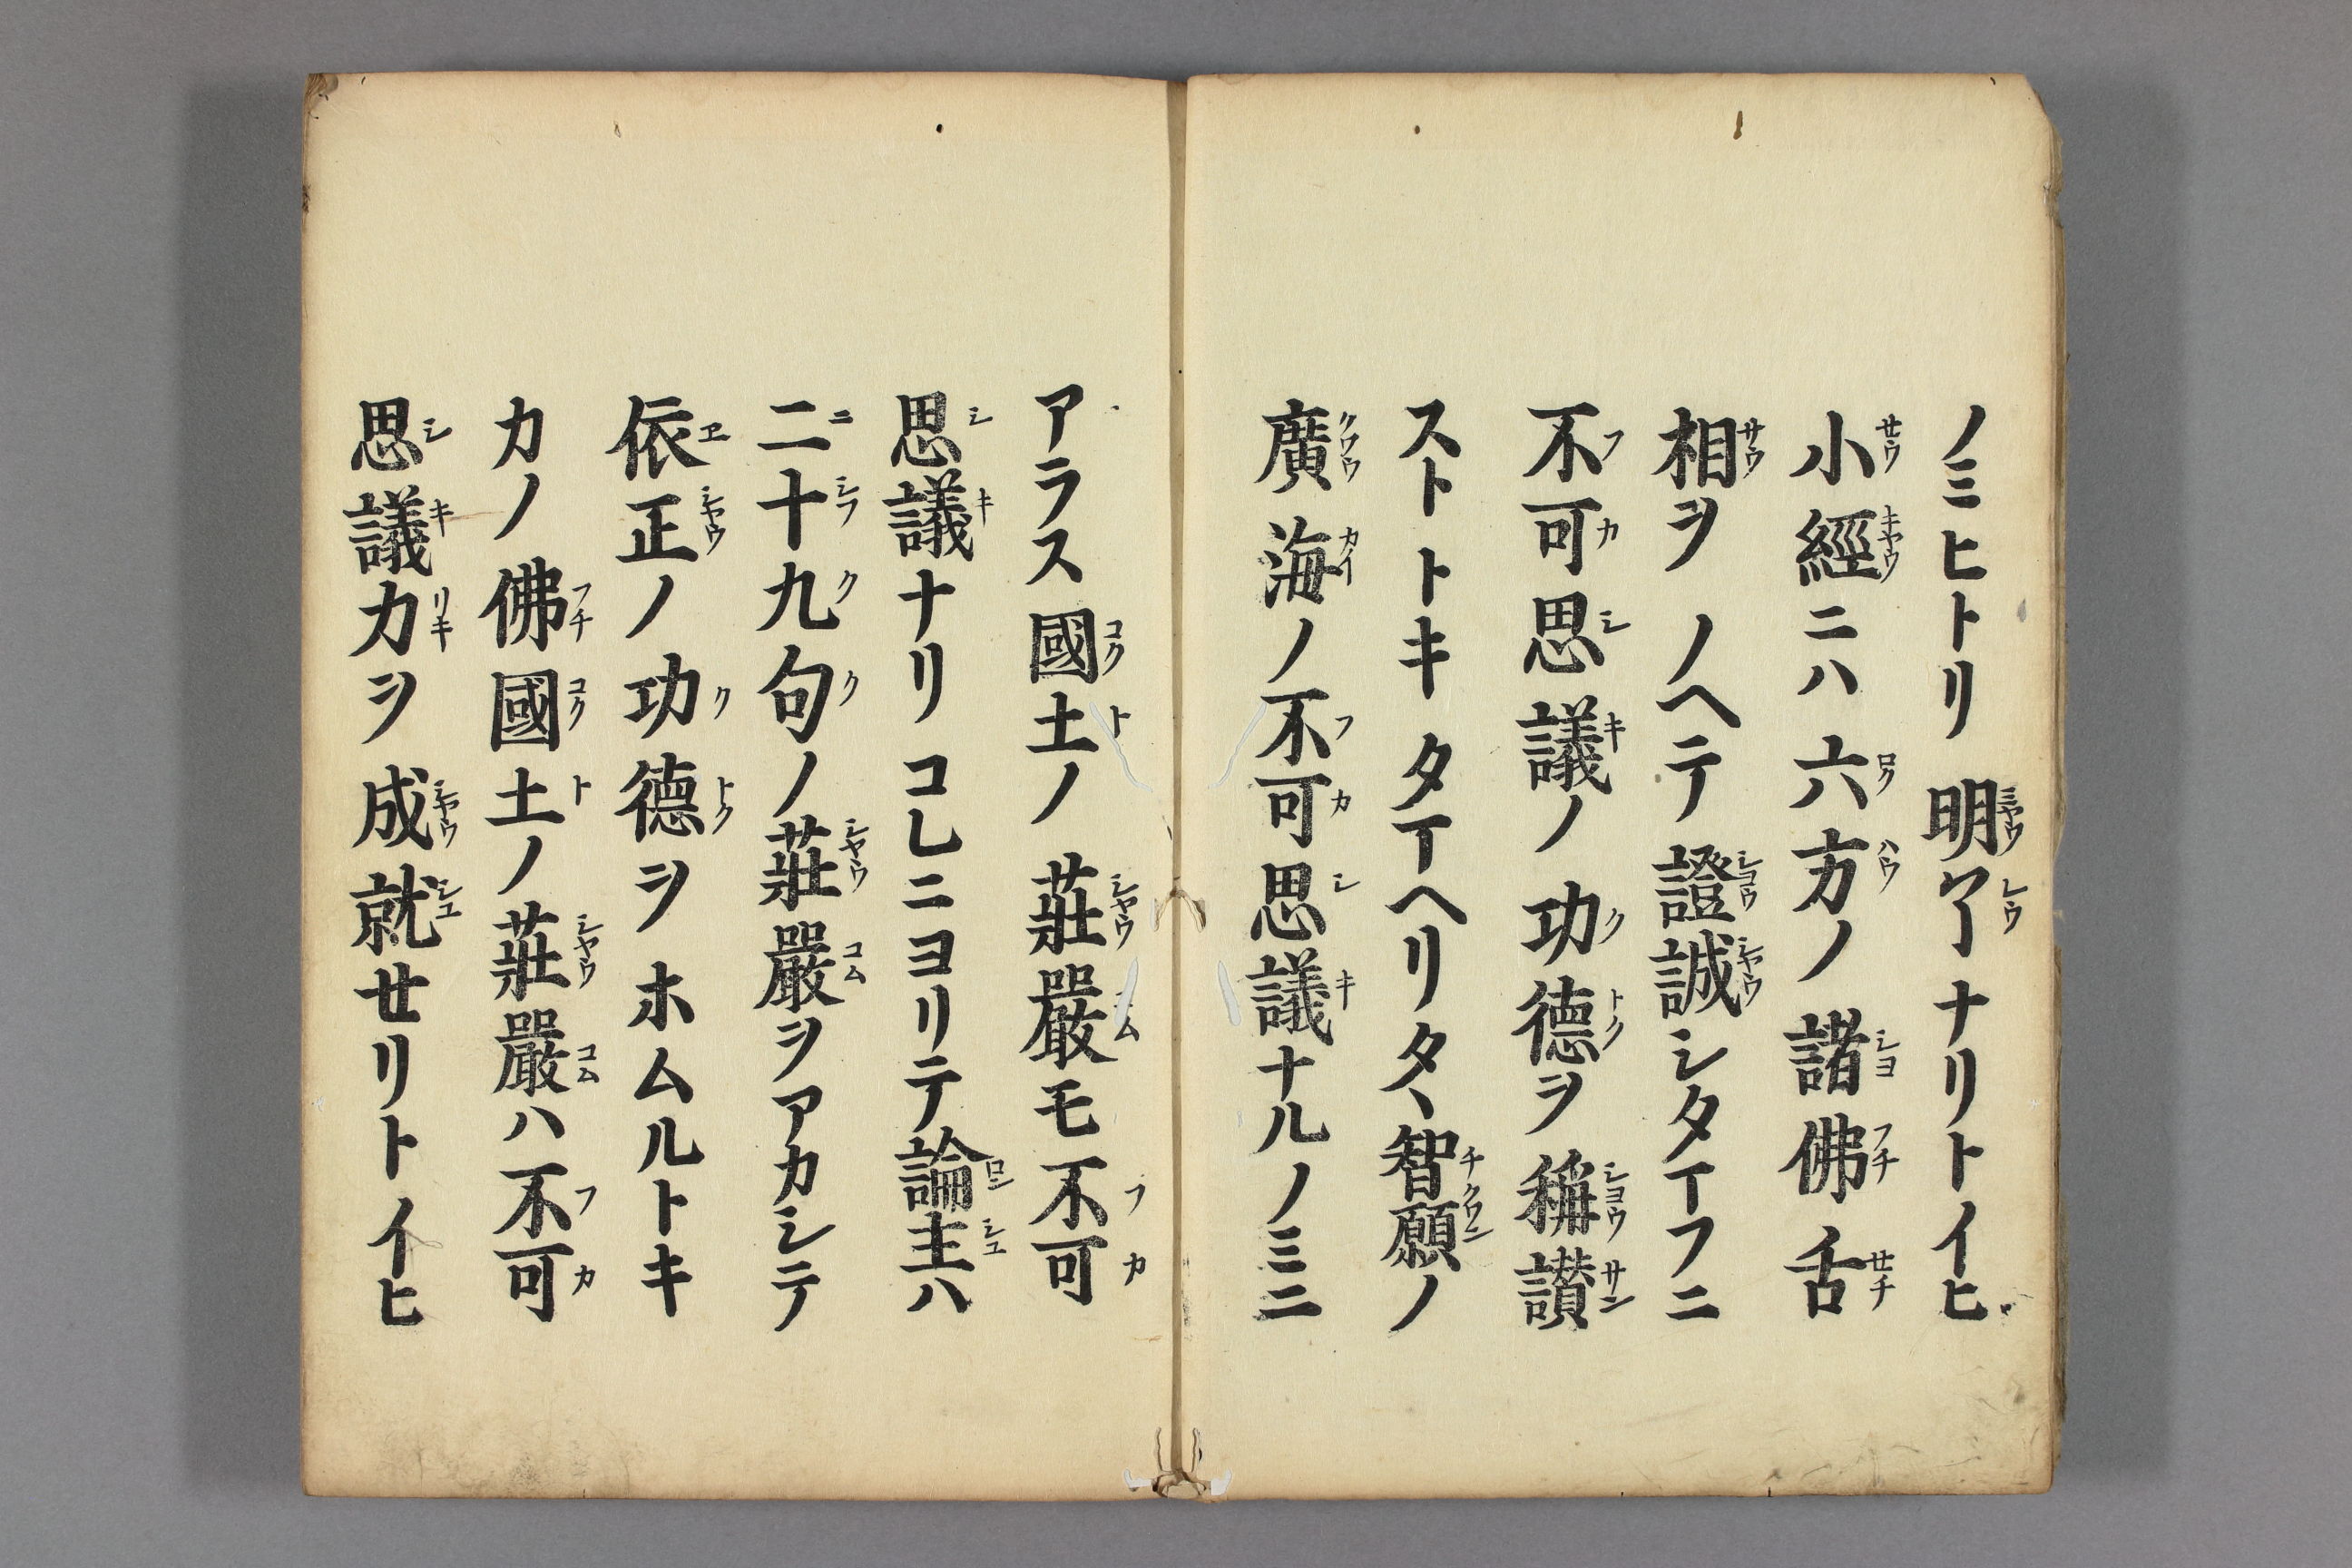 ノミヒトリ明了ナリトイヒ
小經ニハ六方ノ諸佛舌
相ヲノヘテ證誠シタマフニ
不可思議ノ功德ヲ稱讃
ストトキタマヘリタヽ智願ノ
廣海ノ不可思議ナルノミニ
アラス國土ノ莊嚴モ不可
思議ナリコレニヨリテ論主ハ
二十九句ノ莊嚴ヲアカシテ
依正ノ功德ヲホムルトキ
カノ佛國土ノ莊嚴ハ不可
思議力ヲ成就セリトイヒ